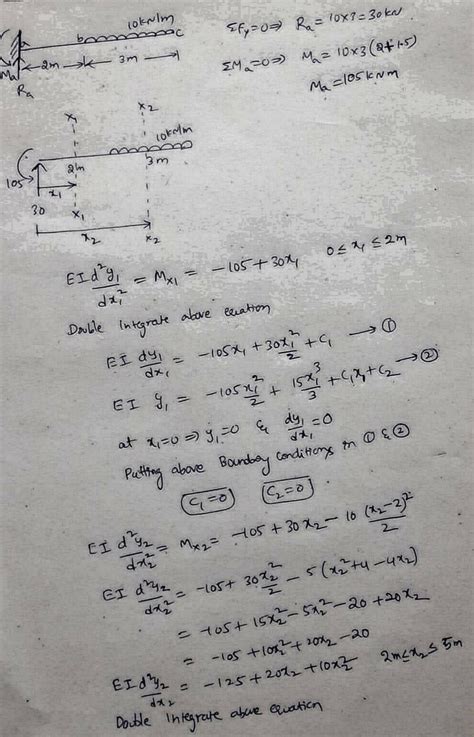 10kN/m
b c
2m 3m
Ma Ra
ΣFy=0 ⇒ Ra = 10×3 = 30 kN
ΣMa=0 ⇒ Ma = 10×3(2+1.5)
Ma = 105 kNm
x1 x2
10kN/m
2m 3m
105 x1
30 x1 x2
x2
EI d²y1/dx1² = Mx1 = -105+30x1 0 ≤ x1 ≤ 2m
Double Integrate above equation
EI dy1/dx1 = -105x1 + 30x1²/2 + C1 → ①
EI y1 = -105x1²/2 + 15x1³/3 + C1x1 + C2 → ②
at x1=0 ⇒ y1=0 & dy1/dx1=0
Putting above Boundary conditions in ① & ②
C1=0 C2=0
EI d²y2/dx2² = Mx2 = -105 + 30x2 - 10 (x2-2)²/2
EI d²y2/dx2² = -105 + 30x2²/2 - 5(x2²+4-4x2)
= -105 + 15x2² - 5x2² - 20 + 20x2
= -105 + 10x2² + 20x2 - 20
EI d²y2/dx2 = -125 + 20x2 + 10x2² 2m ≤ x2 ≤ 5m
Double Integrate above equation